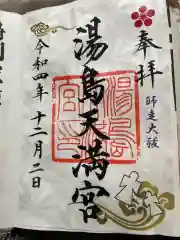 奉拝
師走大祓
湯島天満宮
令和四年十二月二日